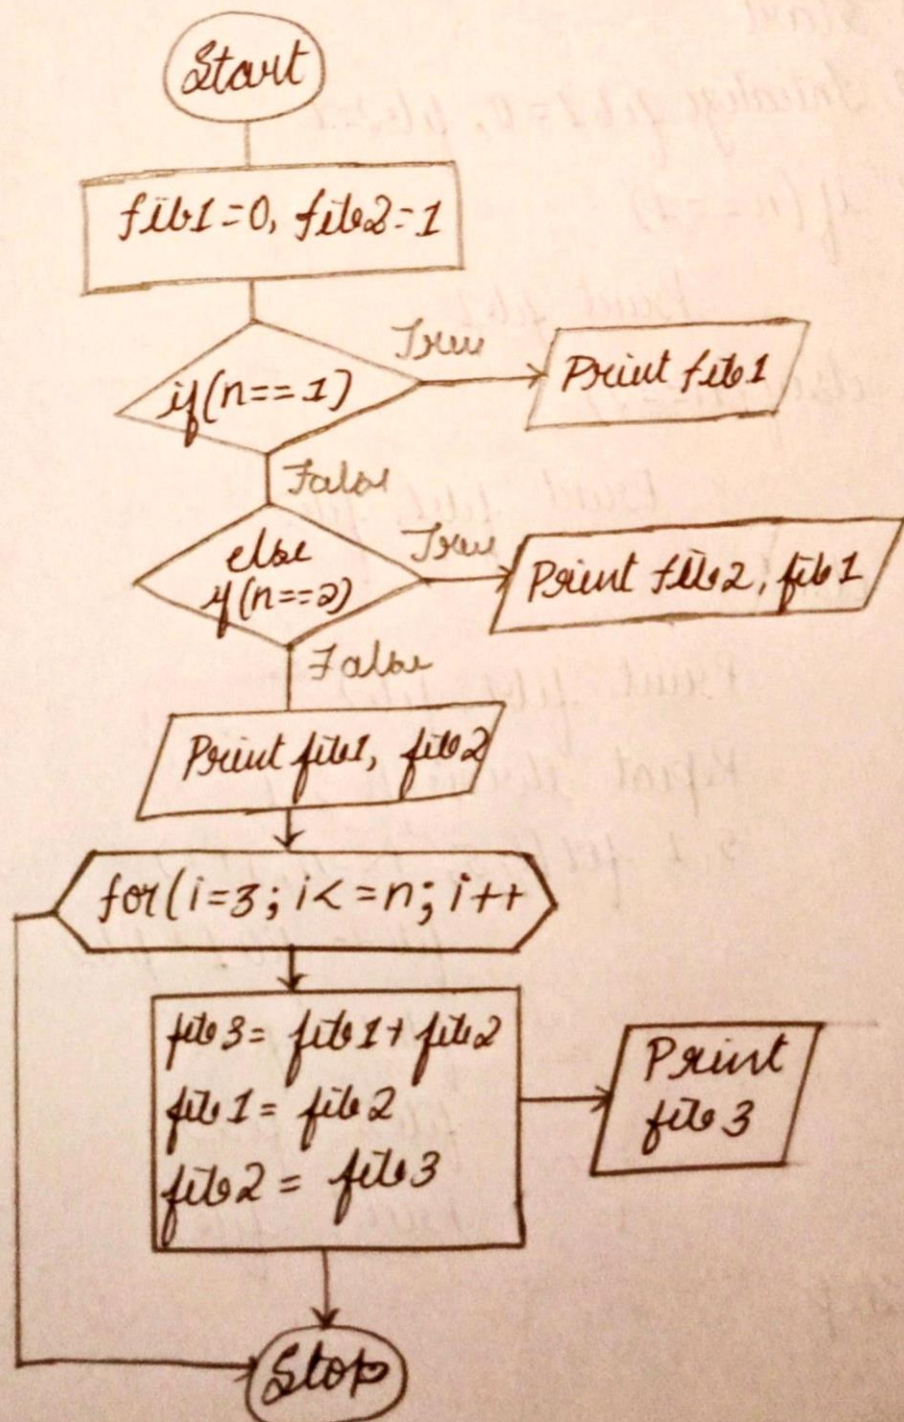 Start
fib1=0, fib2=1
if(n==1)
True
Print fib1
False
else
if(n==2)
True
Print fib2, fib1
False
Print fib1, fib2
for(i=3; i<=n; i++
fib3= fib1+ fib2
fib1= fib2
fib2= fib3
Print
fib3
Stop